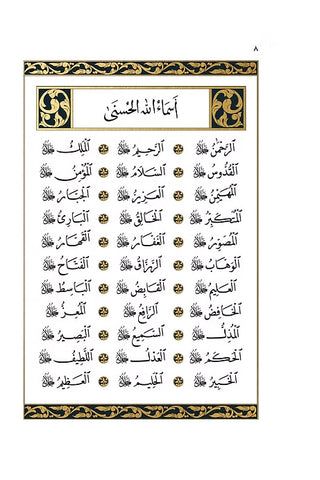 ٨
أَسْمَاءُ اللهِ الْحُسْنَى
الرَّحْمٰنُ ﷻ الرَّحِيمُ ﷻ الْمَلِكُ ﷻ
الْقُدُّوسُ ﷻ السَّلَامُ ﷻ الْمُؤْمِنُ ﷻ
الْمُهَيْمِنُ ﷻ الْعَزِيزُ ﷻ الْجَبَّارُ ﷻ
الْمُتَكَبِّرُ ﷻ الْخَالِقُ ﷻ الْبَارِئُ ﷻ
الْمُصَوِّرُ ﷻ الْغَفَّارُ ﷻ الْقَهَّارُ ﷻ
الْوَهَّابُ ﷻ الرَّزَّاقُ ﷻ الْفَتَّاحُ ﷻ
الْعَلِيمُ ﷻ الْقَابِضُ ﷻ الْبَاسِطُ ﷻ
الْخَافِضُ ﷻ الرَّافِعُ ﷻ الْمُعِزُّ ﷻ
الْمُذِلُّ ﷻ السَّمِيعُ ﷻ الْبَصِيرُ ﷻ
الْحَكَمُ ﷻ الْعَدْلُ ﷻ اللَّطِيفُ ﷻ
الْخَبِيرُ ﷻ الْحَلِيمُ ﷻ الْعَظِيمُ ﷻ